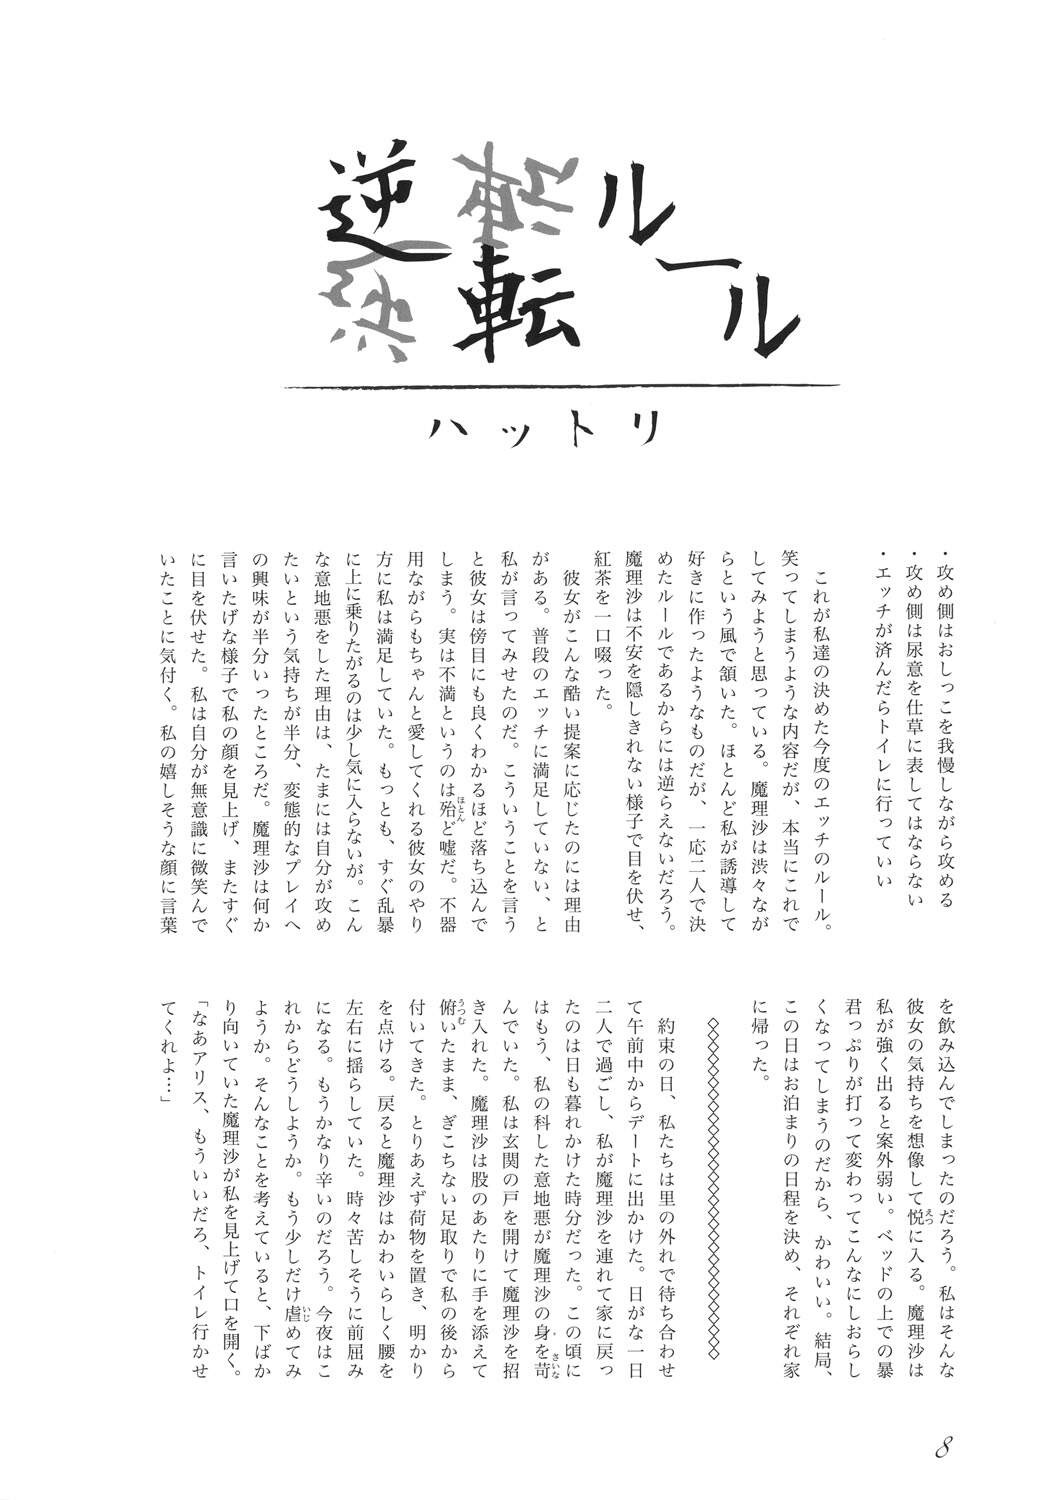 逆転ルール
ハットリ
・攻め側はおしっこを我慢しながら攻める
・攻め側は尿意を仕草に表してはならない
・エッチが済んだらトイレに行っていい
これが私達の決めた今度のエッチのルール。
笑ってしまうような内容だが、本当にこれで
してみようと思っている。魔理沙は渋々なが
らという風で頷いた。ほとんど私が誘導して
好きに作ったようなものだが、一応二人で決
めたルールであるからには逆らえないだろう。
魔理沙は不安を隠しきれない様子で目を伏せ、
紅茶を一口啜った。
彼女がこんな酷い提案に応じたのには理由
がある。普段のエッチに満足していない、と
私が言ってみせたのだ。こういうことを言う
と彼女は傍目にも良くわかるほど落ち込んで
しまう。実は不満というのは殆ど嘘だ。不器
用ながらもちゃんと愛してくれる彼女のやり
方に私は満足していた。もっとも、すぐ乱暴
に上に乗りたがるのは少し気に入らないが。こん
な意地悪をした理由は、たまには自分が攻め
たいという気持ちが半分、変態的なプレイへ
の興味が半分いったところだ。魔理沙は何か
言いたげな様子で私の顔を見上げ、またすぐ
に目を伏せた。私は自分が無意識に微笑んで
いたことに気付く。私の嬉しそうな顔に言葉
を飲み込んでしまったのだろう。私はそんな
彼女の気持ちを想像して悦に入る。魔理沙は
私が強く出ると案外弱い。ベッドの上での暴
君っぷりが打って変わってこんなにしおらし
くなってしまうのだから、かわいい。結局、
この日はお泊まりの日程を決め、それぞれ家
に帰った。
◇◇◇◇◇◇◇◇◇◇◇◇◇◇◇◇◇◇◇◇◇◇◇◇◇◇◇
約束の日、私たちは里の外れで待ち合わせ
て午前中からデートに出かけた。日がな一日
二人で過ごし、私が魔理沙を連れて家に戻っ
たのは日も暮れかけた時分だった。この頃に
はもう、私の科した意地悪が魔理沙の身を苛
んでいた。私は玄関の戸を開けて魔理沙を招
き入れた。魔理沙は股のあたりに手を添えて
俯いたまま、ぎこちない足取りで私の後から
付いてきた。とりあえず荷物を置き、明かり
を点ける。戻ると魔理沙はかわいらしく腰を
左右に揺らしていた。時々苦しそうに前屈み
になる。もうかなり辛いのだろう。今夜はこ
れからどうしようか。もう少しだけ虐めてみ
ようか。そんなことを考えていると、下ばか
り向いていた魔理沙が私を見上げて口を開く。
「なあアリス、もういいだろ、トイレ行かせ
てくれよ…」
8